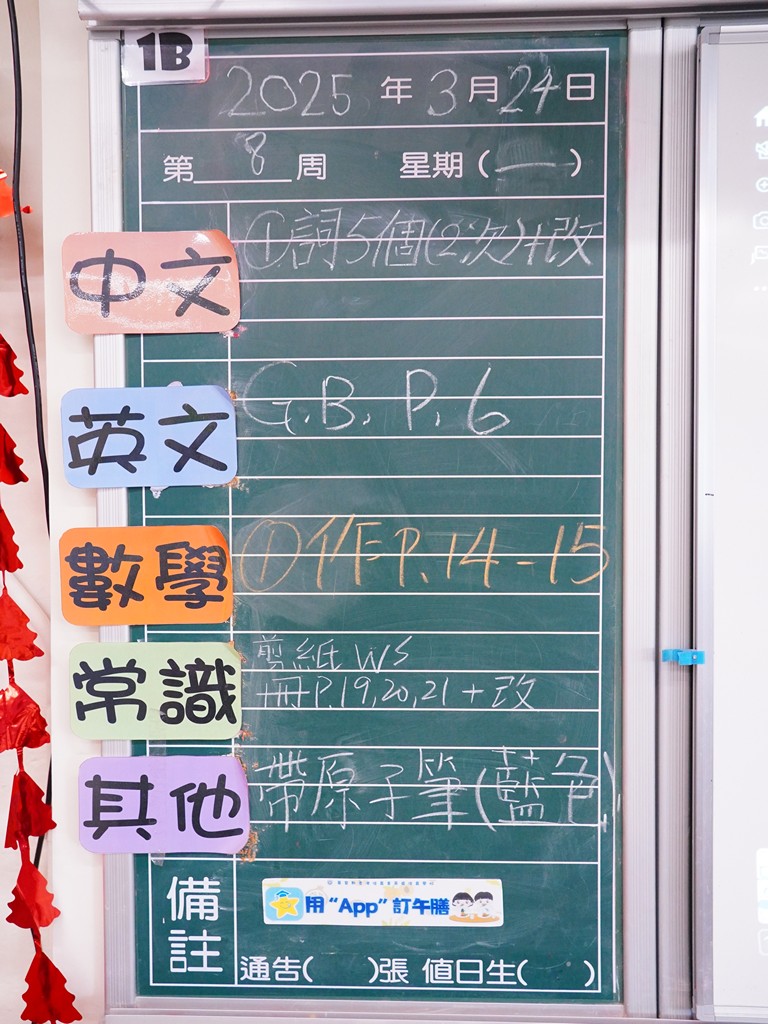 1B
2025 年 3 月 24 日
第 8 周 星期(一)
中文 ①詞5個(2次)+改
英文 G.B. P.6
數學 ①作P.14-15
常識 剪紙 WS
冊P.19,20,21+改
其他 帶原子筆(藍色)
備註 用“App”訂午膳
通告( )張 值日生( )